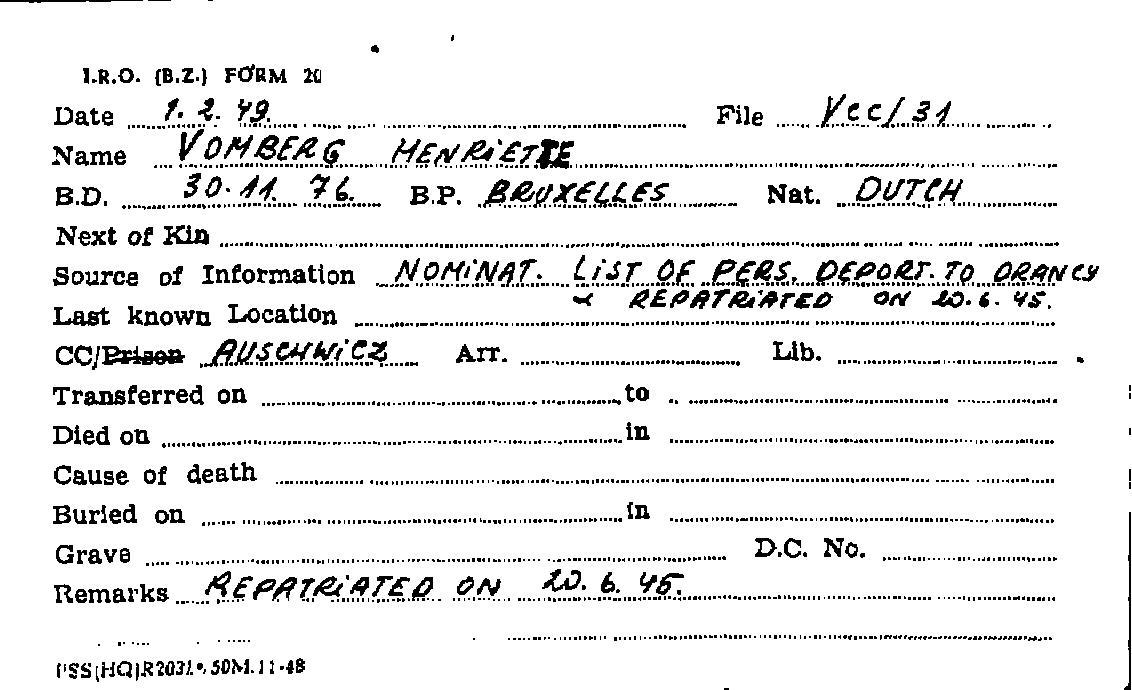 I.R.O. (B.Z.) FORM 20
Date 1. 2. 49. File Vcc/31
Name VOMBERG HENRIETTE
B.D. 30.11. 76. B.P. BRUXELLES Nat. DUTCH
Next of Kin
Source of Information NOMINAT. LIST OF PERS. DEPORT. TO DRANCY
& REPATRIATED ON 20.6.45.
Last known Location
CC/Prison AUSCHWICZ Arr. Lib.
Transferred on to
Died on in
Cause of death
Buried on in
Grave D.C. No.
Remarks REPATRIATED ON 20. 6. 45.
PSS(HQ)R2031. 50M.11-48